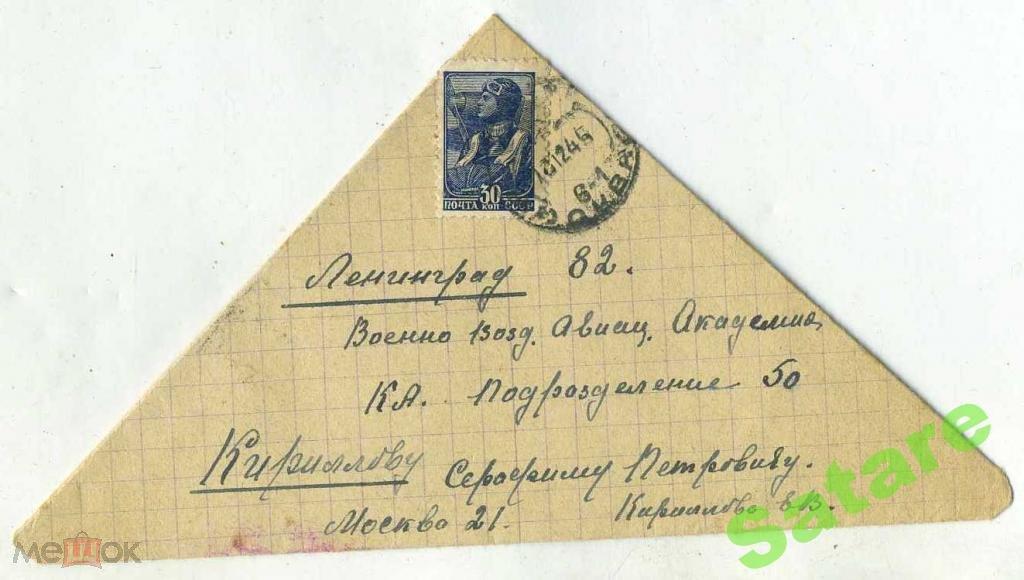 30
ПОЧТА КОП СССР
МОСКВА
101245
6-1
Ленинград 82.
Военно Возд. Авиац. Академия
КА. Подразделение 50
Кириллову Серафиму Петровичу.
Москва 21. Кириллова Е.В.
мешок
Satare